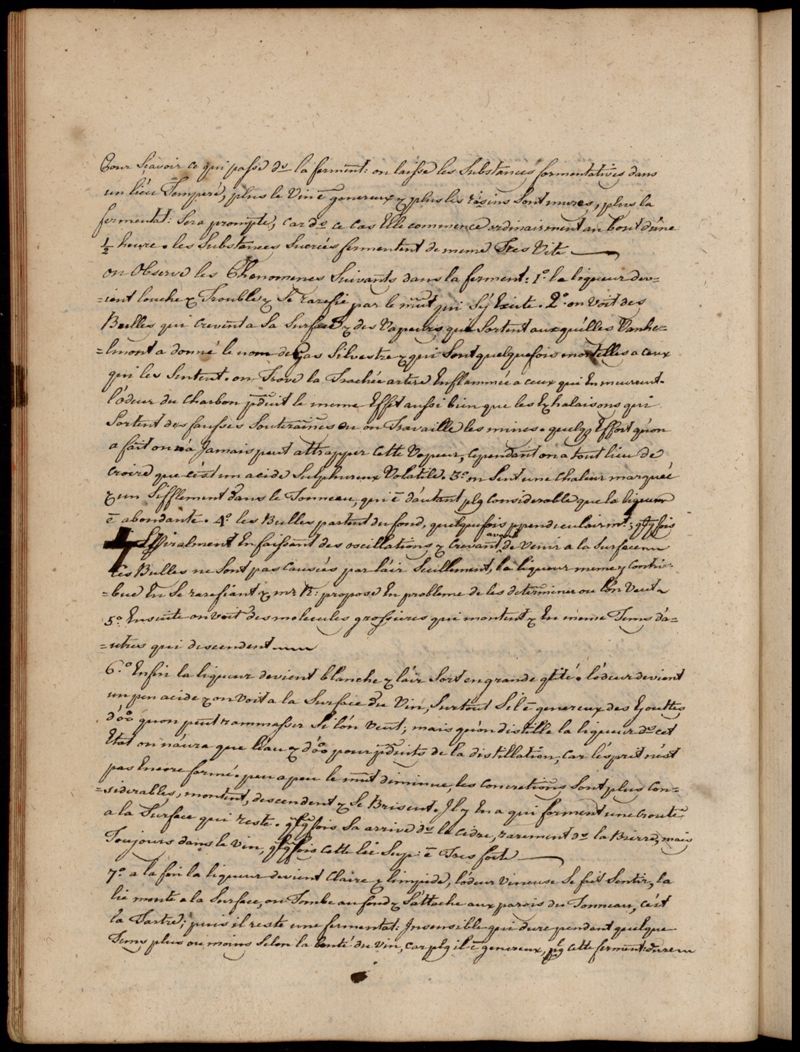 Pour sçavoir ce qui passe ds la ferment: on laisse les Substances fermentatives dans
un lieu Temperé, plus le Vin ē genereux & plus les résins sont mures, plus la
fermentat: sera prompte, car ds ce cas Elle commence ordinairement au bout d'une
½ heure. les Substances Sucrées fermentent de meme Tres Vite
on Observe les Phenomenes Suivants dans la ferment: 1º la liqueur dev-
=ient louche & Trouble & se rarefie par le mūt qui s'y Exite. 2º on voit des
Bulles qui crevent a sa Surface & des Vapeurs qui sortent auxquelles Vanhe-
=lmont a donné le nom de Gas Silvestre & qui sont quelquefois mortelles a ceux
qui les sentent. on Trove la Trachée artere Enflammée a ceux qui En meurent.
l'odeur du Charbon pduit le meme Effet aussi bien que les Exhalaisons qui
sortent des fausses Souteraines ou on Travaille les mines. quelq Effort qu'on
a fait on n'a Jamais peut attrapper cette Vapeur, Cependant on a tout lieu de
croire que c'est un acide Sulphureux Volatile. 3º on sent une chaleur marquée
& un Sifflement dans le Tonneau, qui ē d'autant plq Considerable que la liqueur
ē abondante. 4º les Bulles partent du fond, quelquefois ppendiculairmt: qqfois
Spiralment En faissant des oscillations & Crevant avant de Venir a la Surface
Ces Bulles ne sont pas causées par l'air Seullement, la liqueur meme y Contri-
=bue En se rarefiant & mr R: propose En probleme de les determiner ou l'on Veut
5º Ensuite on voit des molecules grossieres qui montent & En meme Tems d'a-
=utres qui descendent
6º Enfin la liqueur devient blanche & l'air sort en grande qtité. l'odeur devient
un peu acide & on voit a la Surface du Vin, Surtout s'il ē genereux des Gouttes
qu'on peut rammasser si l'on veut; mais qu'on distille la liqueur ds cet
Etat on n'aura que l'eau & pour pduits de la distillation, car l'esprit n'est
pas Encore formé. peu a peu le mūt diminue, les concretions sont plus con-
=siderables, montent, descendent & se Brisent. Il y En a qui forment une croute
a la Surface qui reste. qqfois sa arrive ds le Cidre, rarement ds la Bierre, mais
Toujours dans le Vin, qqfois cette lie Sup: ē Tres fort
7º a la fin la liqueur devient Claire & limpide, l'odeur Veneuse se fait Sentir, la
lie monte a la Surface, ou Tombe au fond & S'attache aux parois du Tonneau, c'est
la Tartre; puis il reste une fermentat: Insensible qui dure pendant quelque
Tems plus ou moins selon la bonté du Vin, car plq il ē genereux, plq cette ferment: dure